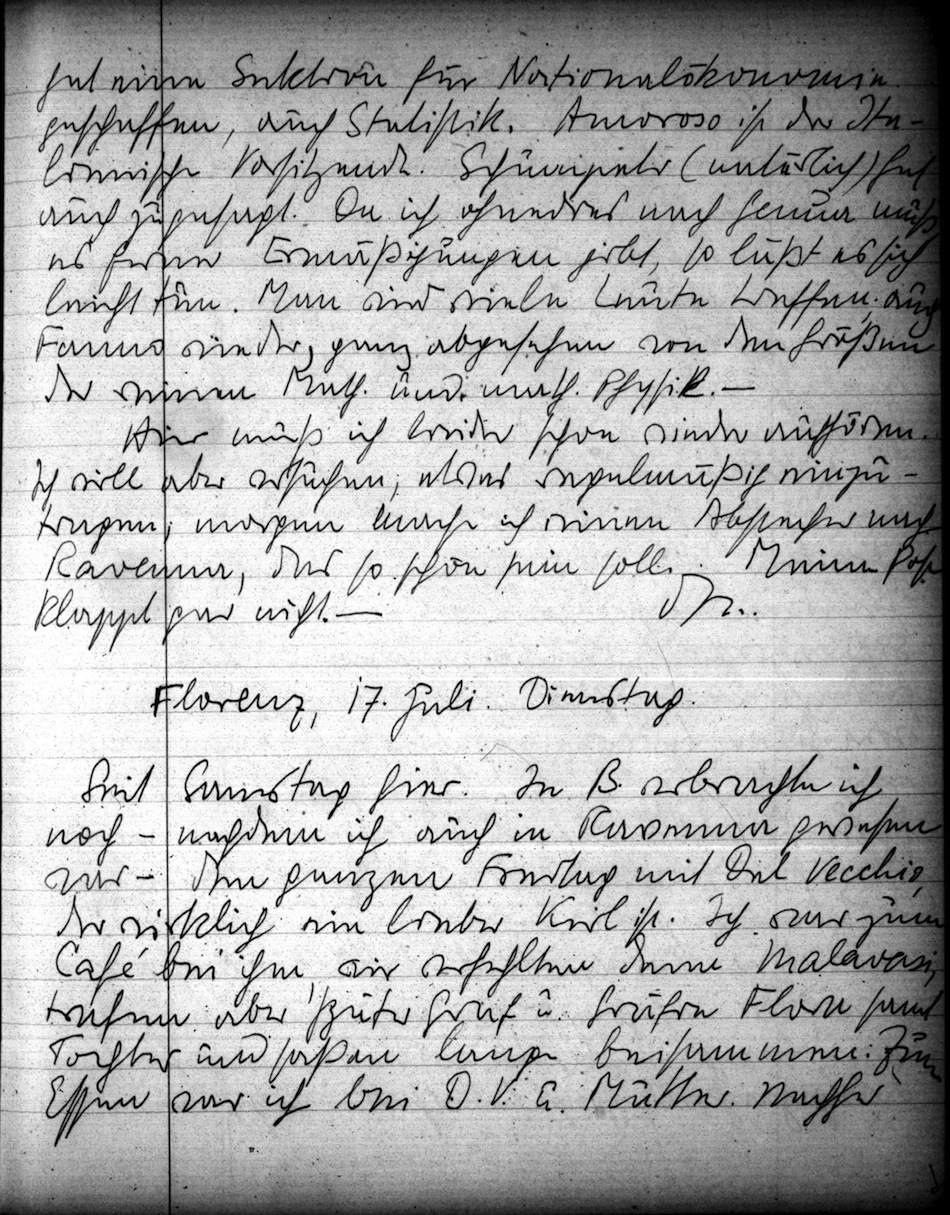 hat eine Sektion für Nationalökonomie
geschaffen, auch Statistik. Amoroso ist der Ita-
lienische Vorsitzende. Schumpeter (natürlich) hat
auch zugesagt. Da ich ohnedies nach Genua muß
es ferner Ermäßigungen gibt, so läßt es sich
leicht tun. Man wird viele Leute treffen, auch
Fanno wieder, ganz abgesehen von den Größen
der reinen Math. und math. Physik. —
Hier muß ich leider schon wieder aufhören.
Ich will aber versuchen, alles regelmäßig einzu-
tragen; morgen mache ich einen Abstecher nach
Ravenna, das so schön sein soll. Meine Post
klappt gar nicht. —
Florenz, 17. Juli. Dienstag.
Seit Samstag hier. In B. verbrachte ich
noch – nachdem ich auch in Ravenna gewesen
war – den ganzen Freitag mit Del Vecchio,
der wirklich ein lieber Kerl ist. Ich war zum
Café bei ihm, wir verfehlten dann Malavasi,
trafen aber später Graf u. Gräfin Flora samt
Tochter und saßen lange beisammen. Zum
Essen war ich bei D. V. u. Mutter. Nachher